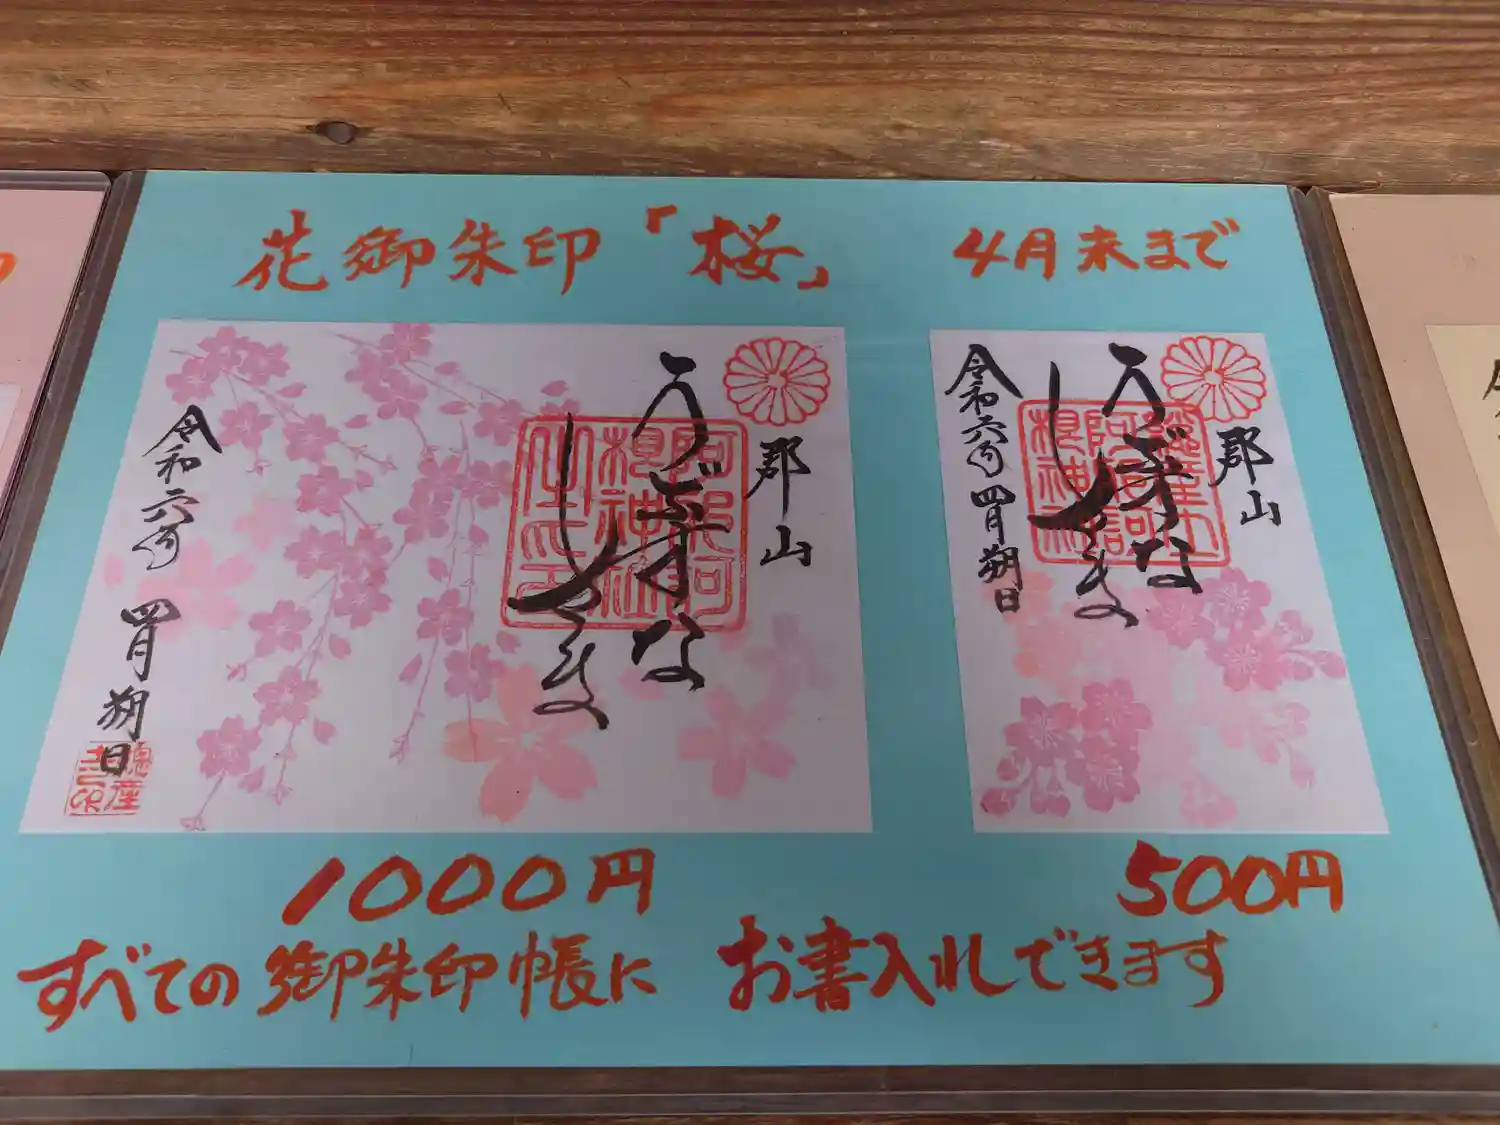 花御朱印「桜」 4月末まで
郡山
うぶすな
令和六年 四月朔日
郡山
うぶすな
令和六年四月朔日
1000円
500円
すべての御朱印帳に お書入れできます